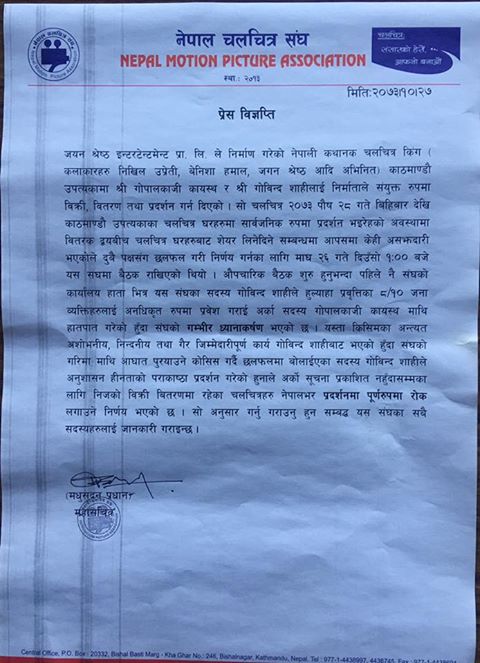 नेपाल चलचित्र संघ
NEPAL MOTION PICTURE ASSOCIATION
स्था.: २०१३
चलचित्र
संसारको हेरौं,
आफ्नो बनाऔं
मिति:२०७३।१०।२७
प्रेस विज्ञप्ति
जयन श्रेष्ठ इन्टरटेन्टमेन्ट प्रा. लि. ले निर्माण गरेको नेपाली कथानक चलचित्र किंग (
कलाकारहरु निखिल उप्रेती, बेनिशा हमाल, जगन श्रेष्ठ आदि अभिनित) काठमाण्डौ
उपत्यकामा श्री गोपालकाजी कायस्थ र श्री गोविन्द शाहीलाई निर्माताले संयुक्त रुपमा
विक्री, वितरण तथा प्रदर्शन गर्न दिएको । सो चलचित्र २०७३ पौष २८ गते बिहिबार देखि
काठमाण्डौ उपत्यकाका चलचित्र घरहरुमा सार्वजनिक रुपमा प्रदर्शन भइरहेको अवस्थामा
वितरक द्वयबीच चलचित्र घरहरुबाट शेयर लिनेदिने सम्बन्धमा आपसमा केही असमझदारी
भएकोले दुवै पक्षसंग छलफल गरी निर्णय गर्नका लागि माघ २६ गते दिउँसो १:०० बजे
यस संघमा बैठक राखिएको थियो । औपचारिक बैठक शुरु हुनुभन्दा पहिले नै संघको
कार्यालय हाता भित्र यस संघका सदस्य गोविन्द शाहीले हुल्याहा प्रवृत्तिका ८/१० जना
व्यक्तिहरुलाई अनधिकृत रुपमा प्रवेश गराई अर्का सदस्य गोपालकाजी कायस्थ माथि
हातपात गरेको हुँदा संघको गम्भीर ध्यानाकर्षण भएको छ । यस्ता किसिमका अन्त्यत
अशोभनीय, निन्दनीय तथा गैर जिम्मेदारीपूर्ण कार्य गोविन्द शाहीबाट भएको हुँदा संघको
गरिमा माथि आघात पुरयाउने कोसिस गर्दै छलफलमा बोलाईएका सदस्य गोविन्द शाहीले
अनुशासन हीनताको पराकाष्ठा प्रदर्शन गरेको हुनाले अर्को सूचना प्रकाशित नहुँदासम्मका
लागि निजको विक्री बितरणमा रहेका चलचित्रहरु नेपालभर प्रदर्शनमा पूर्णरुपमा रोक
लगाउने निर्णय भएको छ । सो अनुसार गर्नु गराउनु हुन सम्बद्ध यस संघका सबै
सदस्यहरुलाई जानकारी गराइन्छ ।
(मधुसुदन प्रधान)
महासचिव
Central Office, P.O. Box : 20332, Bishal Basti Marg - Kha Ghar No.: 246, Bishalnagar, Kathmandu, Nepal, Tel : 977-1-4438997, 4436745, Fax : 977-1-